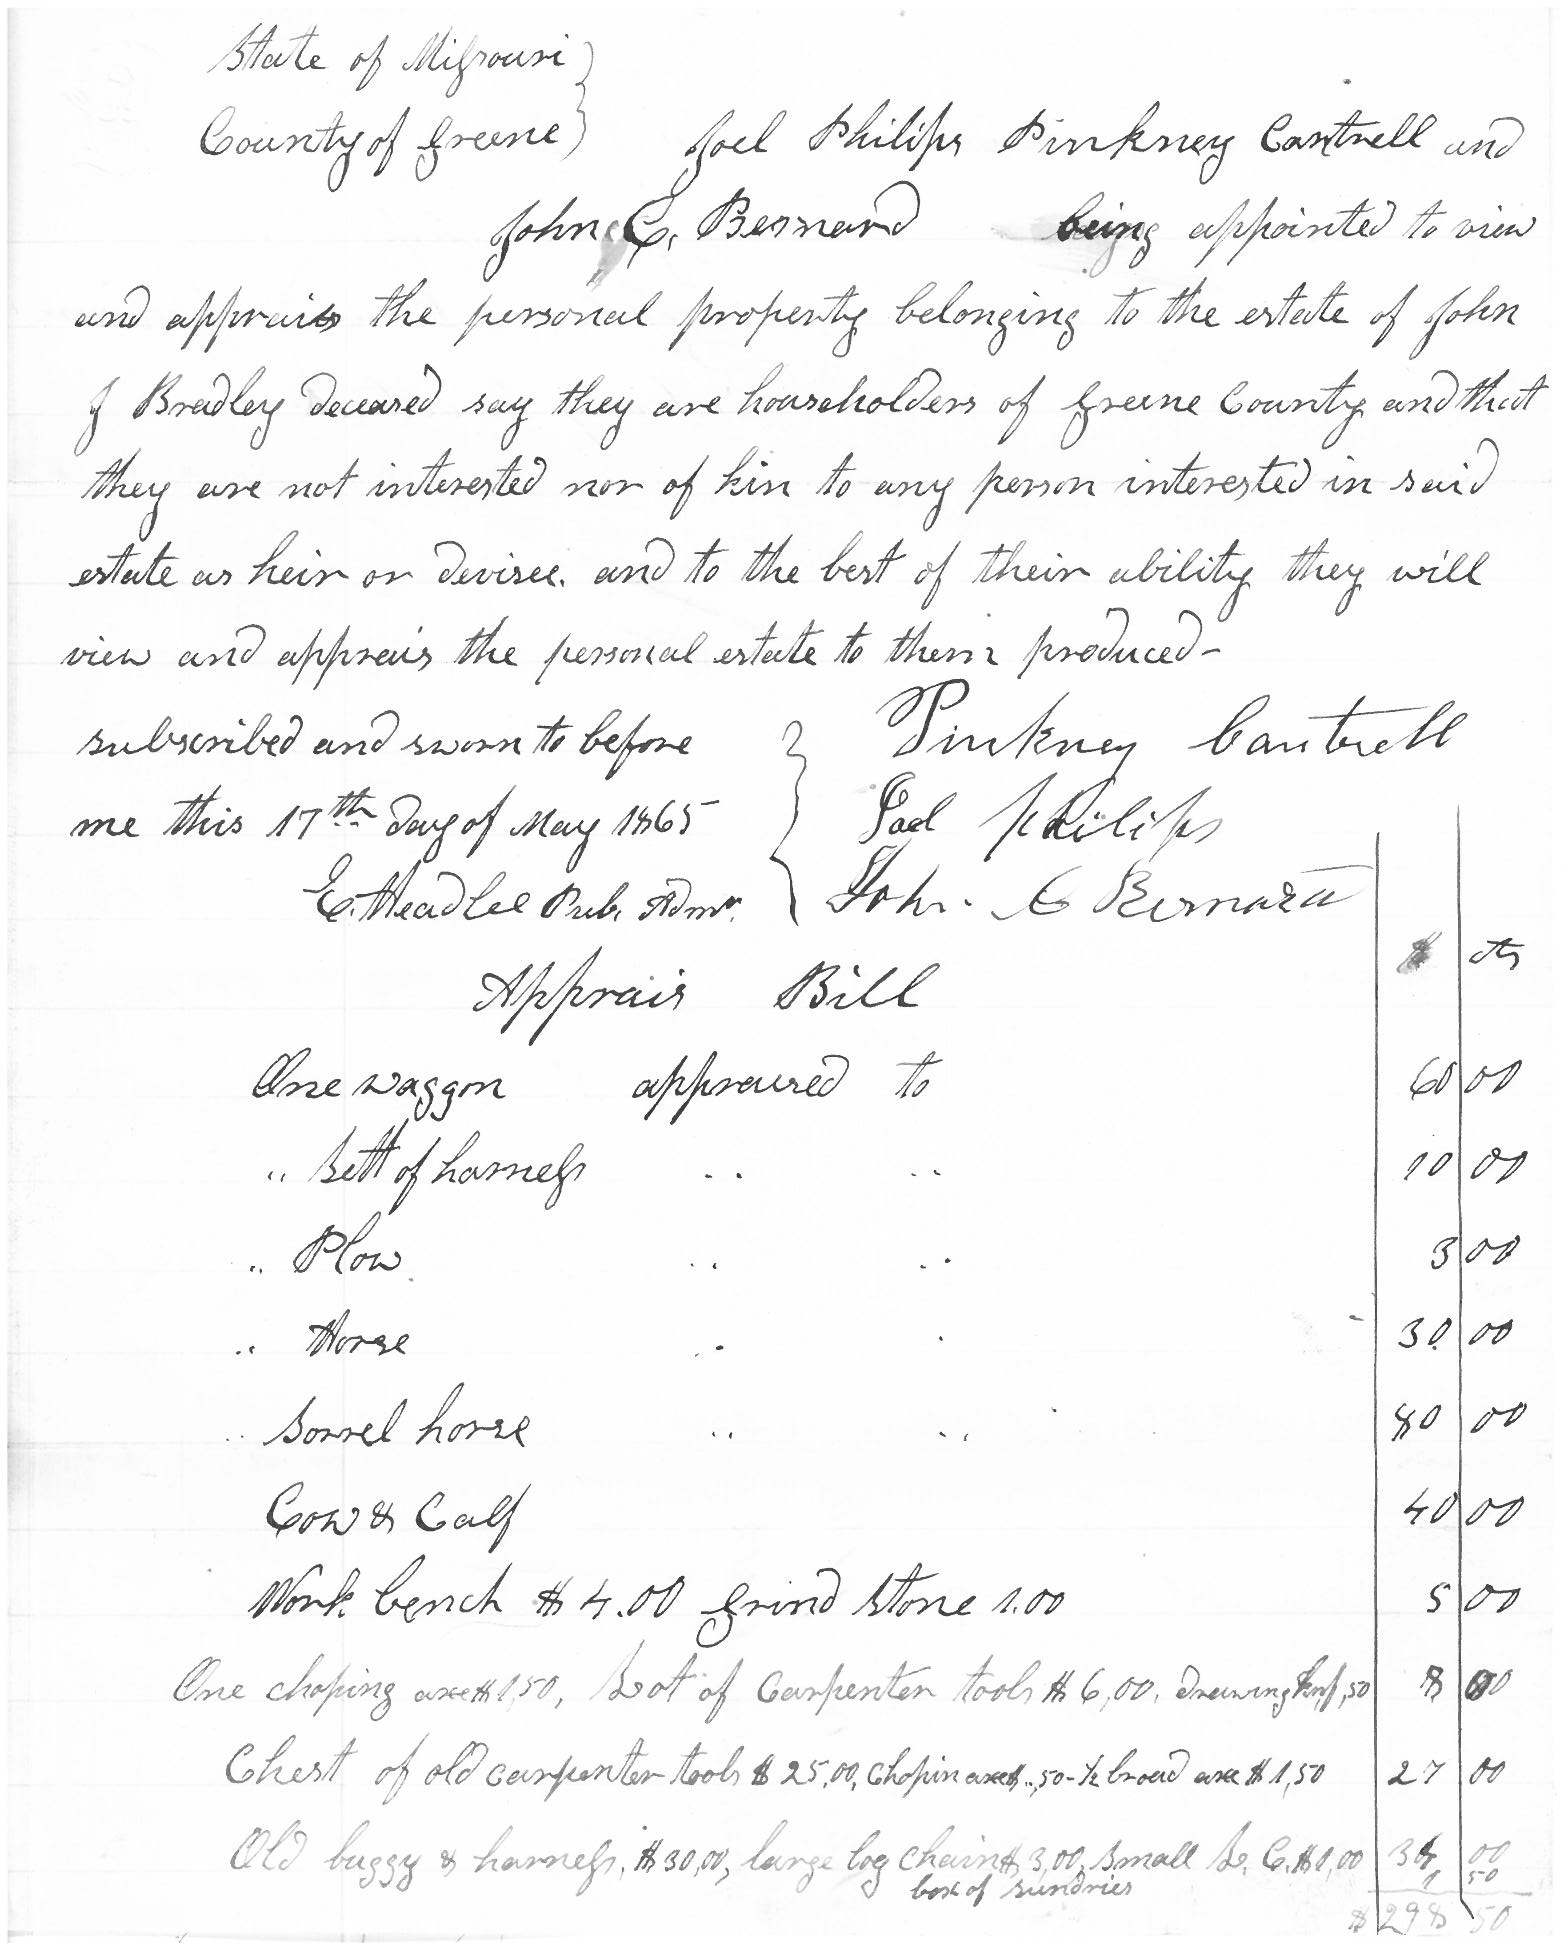 State of Missouri }
County of Greene } Joel Philips Pinkney Cantrell and
John C. Bernard being appointed to view
and apprais the personal property belonging to the estate of John
J Bradley deceased say they are householders of Greene County and that
they are not interested nor of kin to any person interested in said
estate as heir or devisee. and to the best of their ability they will
view and apprais the personal estate to them produced-
subscribed and sworn to before } Pinkney Cantrell
me this 17th day of May 1865 } Joel Philips
E. Headlee Pub. Admr. } John C Bernard
$ cts
Apprais Bill
One waggon appraised to 60 00
" Sett of harness " " 10 00
" Plow " " 3 00
" Horse " " 30 00
" Sorrel horse " " 80 00
Cow & Calf 40 00
Work bench $4.00 Grind Stone 1.00 5 00
One choping axe $1,50, Lot of Carpenter tools $6,00. drawing knf ,50 8 00
Chest of old carpenter tools $25,00, Chopin axe $..,50 - 1/2 broad axe $1,50 27 00
Old buggy & harness, $30,00, large log chain $3,00, small L. C. $1,00 34 00
box of sundries 1 50
$298 50